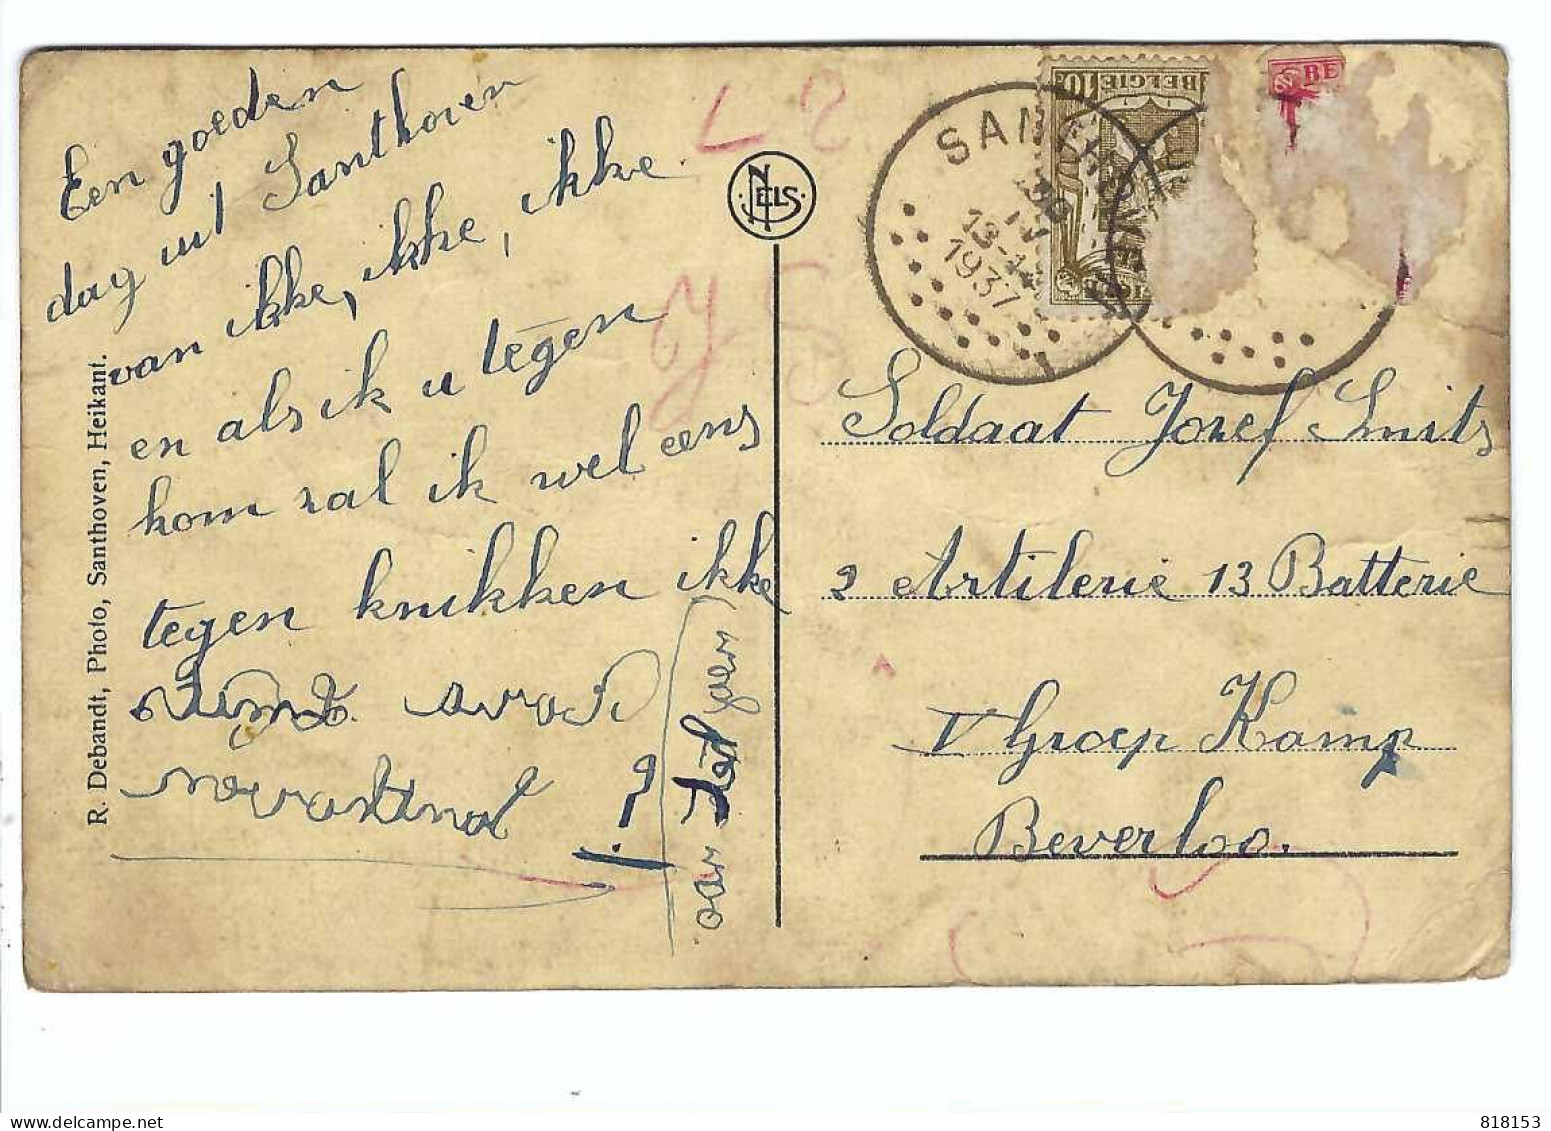 Een goeden
dag uit Santhoven
van ikke, ikke, ikke
en als ik u tegen
kom zal ik wel eens
tegen knikken ikke
R. Debandt, Photo, Santhoven, Heikant.
NELS
BELGIE 10
BE
SANTHOVEN
30
IV
13-14
1937
Soldaat Jozef Smits
2 Artilerie 13 Batterie
V Groep Kamp
Beverloo.
818153